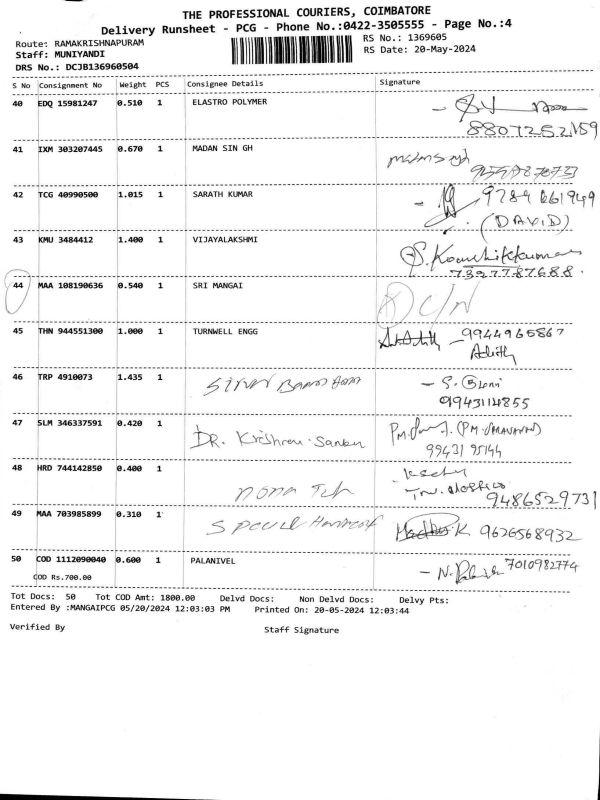 THE PROFESSIONAL COURIERS, COIMBATORE
Delivery Runsheet - PCG - Phone No.:0422-3505555 - Page No.:4
Route: RAMAKRISHNAPURAM RS No.: 1369605
Staff: MUNIYANDI RS Date: 20-May-2024
DRS No.: DCJB136960504
S No Consignment No Weight PCS Consignee Details Signature
40 EDQ 15981247 0.510 1 ELASTRO POLYMER
8807252159
41 IXM 303207445 0.670 1 MADAN SIN GH
42 TCG 40990500 1.015 1 SARATH KUMAR
(DAVID)
43 KMU 3484412 1.400 1 VIJAYALAKSHMI
7327787688.
44 MAA 108190636 0.540 1 SRI MANGAI
45 THN 944551300 1.000 1 TURNWELL ENGG
9944965867
46 TRP 4910073 1.435 1
9943114855
47 SLM 346337591 0.420 1 DR. Krishna
99431 95144
48 HRD 744142850 0.400 1
9486529731
49 MAA 703985899 0.310 1 9626568932
50 COD 1112090040 0.600 1 PALANIVEL
COD Rs.700.00 7010982774
Tot Docs: 50 Tot COD Amt: 1800.00 Delvd Docs: Non Delvd Docs: Delvy Pts:
Entered By :MANGAIPCG 05/20/2024 12:03:03 PM Printed On: 20-05-2024 12:03:44
Verified By Staff Signature